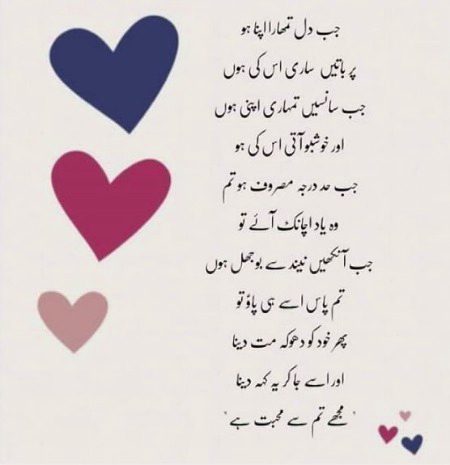 جب دل تمھارا اپنا ہو
پر باتیں ساری اس کی ہوں
جب سانسیں تمہاری اپنی ہوں
اور خوشبو آتی اس کی ہو
جب حد درجہ مصروف ہو تم
وہ یاد اچانک آئے تو
جب آنکھیں نیند سے بوجھل ہوں
تم پاس اسے ہی پاؤ تو
پھر خود کو دھوکہ مت دینا
اور اسے جا کر یہ کہہ دینا
"مجھے تم سے محبت ہے"